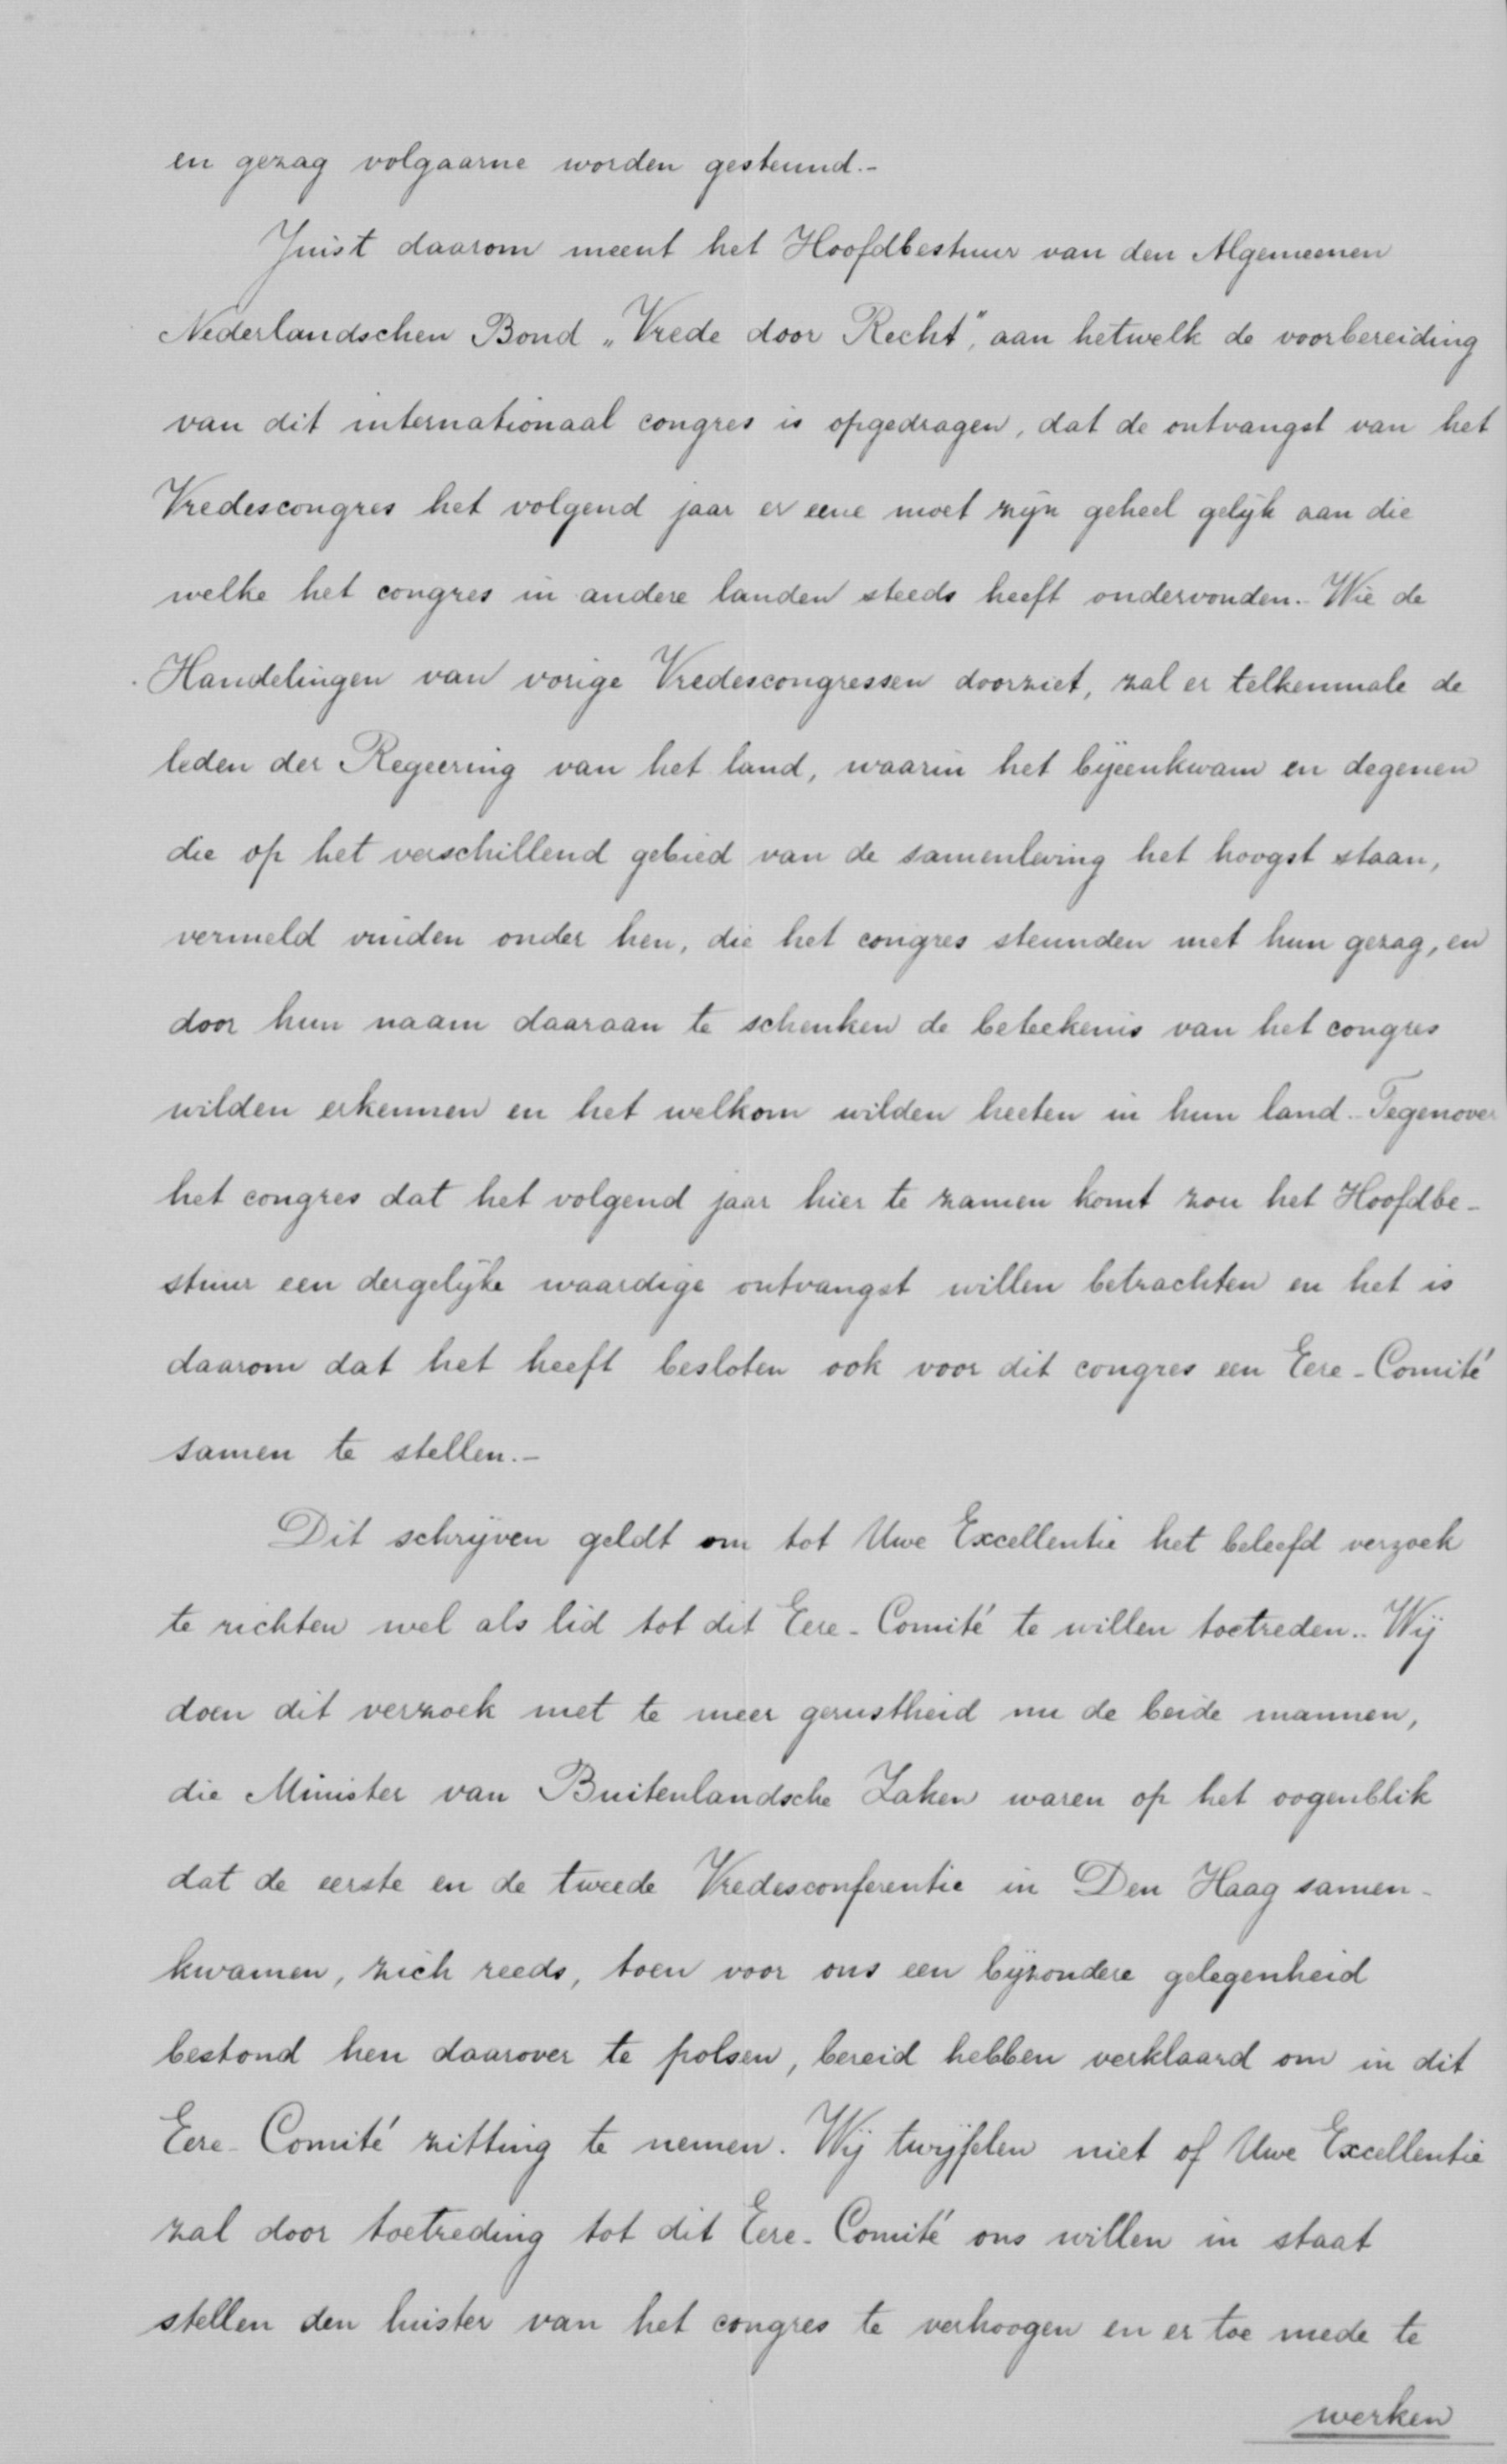 en gezag volgaarne worden gesteund.-
Juist daarom meent het Hoofdbestuur van den Algemeenen
Nederlandschen Bond „Vrede door Recht", aan hetwelk de voorbereiding
van dit internationaal congres is opgedragen, dat de ontvangst van het
Vredescongres het volgend jaar er eene moet zijn geheel gelijk aan die
welke het congres in andere landen steeds heeft ondervonden.- Wie de
Handelingen van vorige Vredescongressen doorziet, zal er telkenmale de
leden der Regeering van het land, waarin het bijeenkwam en degenen
die op het verschillend gebied van de samenleving het hoogst staan,
vermeld vinden onder hen, die het congres steunden met hun gezag, en
door hun naam daaraan te schenken de beteekenis van het congres
wilden erkennen en het welkom wilden heeten in hun land.- Tegenover
het congres dat het volgend jaar hier te zamen komt zou het Hoofdbe-
stuur een dergelijke waardige ontvangst willen betrachten en het is
daarom dat het heeft besloten ook voor dit congres een Eere-Comité
samen te stellen.-
Dit schrijven geldt om tot Uwe Excellentie het beleefd verzoek
te richten wel als lid tot dit Eere-Comité te willen toetreden.- Wij
doen dit verzoek met te meer gerustheid nu de beide mannen,
die Minister van Buitenlandsche Zaken waren op het oogenblik
dat de eerste en de tweede Vredesconferentie in Den Haag samen-
kwamen, zich reeds, toen voor ons een bijzondere gelegenheid
bestond hen daarover te polsen, bereid hebben verklaard om in dit
Eere-Comité zitting te nemen. Wij twijfelen niet of Uwe Excellentie
zal door toetreding tot dit Eere-Comité ons willen in staat
stellen den luister van het congres te verhoogen en er toe mede te
werken